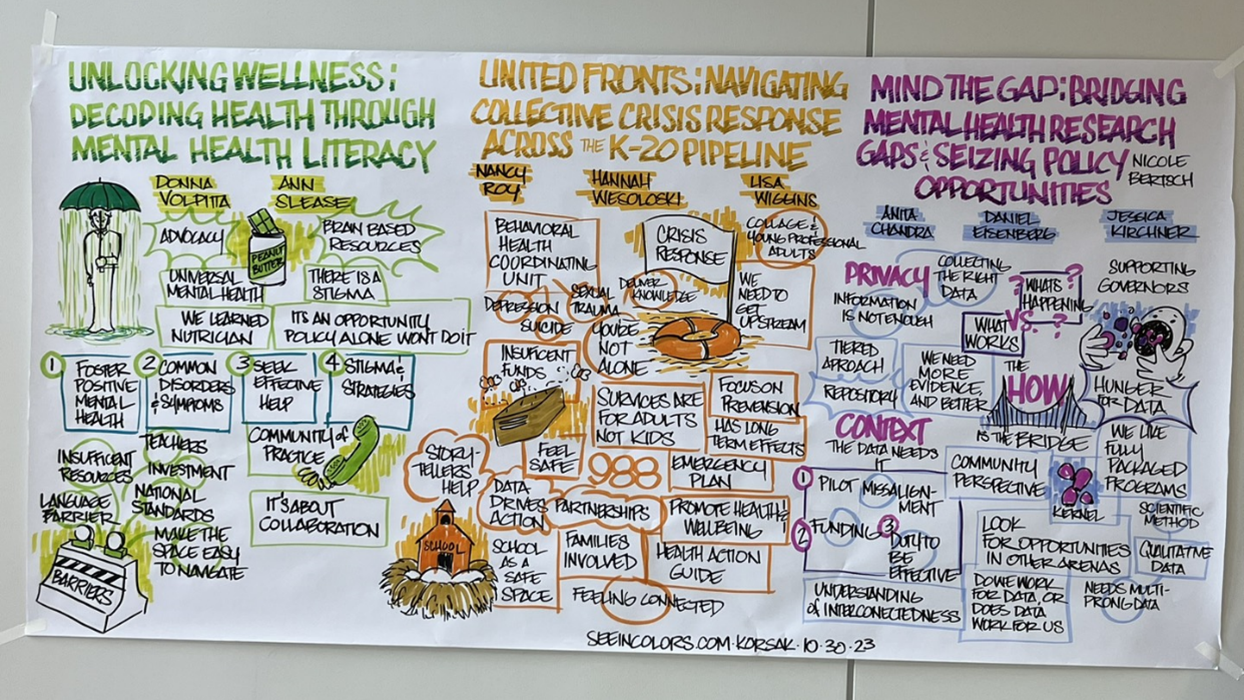 UNLOCKING WELLNESS:
DECODING HEALTH THROUGH
MENTAL HEALTH LITERACY
DONNA
VOLPITTA
ANN
SLEASE
ADVOCACY
PEANUT
BUTTER
BRAIN BASED
RESOURCES
UNIVERSAL
MENTAL HEALTH
THERE IS A
STIGMA
WE LEARNED
NUTRICIAN
ITS AN OPPORTUNITY
POLICY ALONE WONT DO IT
1 FOSTER
POSITIVE
MENTAL
HEALTH
2 COMMON
DISORDERS
& SYMPTOMS
3 SEEK
EFFECTIVE
HELP
4 STIGMA &
STRATEGIES
INSUFFICENT
RESOURCES
TEACHERS
INVESTMENT
LANGUAGE
BARRIER
NATIONAL
STANDARDS
MAKE THE
SPACE EASY
TO NAVIGATE
BARRIERS
COMMUNITY of
PRACTICE
IT'S ABOUT
COLLABORATION
UNITED FRONTS: NAVIGATING
COLLECTIVE CRISIS RESPONSE
ACROSS THE K-20 PIPELINE
NANCY
ROY
HANNAH
WESOLOSKI
LISA
WIGGINS
BEHAVIORAL
HEALTH
COORDINATING
UNIT
CRISIS
RESPONSE
COLLAGE &
YOUNG PROFESSIONAL
ADULTS
DEPRESSION
SUICIDE
SEXUAL
TRAUMA
DELIVER
KNOWLEDGE
WE
NEED TO
GET
UPSTREAM
YOU'RE
NOT
ALONE
INSUFICENT
FUNDS
SURVICES ARE
FOR ADULTS
NOT KIDS
FOCUS ON
PREVENSION
HAS LONG
TERM EFFECTS
FEEL
SAFE
988
EMERGENCY
PLAN
STORY-
TELLERS
HELP
DATA
DRIVES
ACTION
PARTNERSHIPS
PROMOTE HEALTH &
WELLBEING
SCHOOL
SCHOOL
AS A
SAFE
SPACE
FAMILIES
INVOLVED
HEALTH ACTION
GUIDE
FEELING CONNECTED
MIND THE GAP: BRIDGING
MENTAL HEALTH RESEARCH
GAPS & SEIZING POLICY
OPPORTUNITIES
NICOLE
BERTSCH
ANITA
CHANDRA
DANIEL
EISENBERG
JESSICA
KIRCHNER
PRIVACY
INFORMATION
IS NOT ENOUGH
COLLECTING
THE RIGHT
DATA
? WHATS ?
HAPPENING
VS. ?
WHAT
WORKS
SUPPORTING
GOVERNORS
TIERED
APROACH
REPOSITORY
WE NEED
MORE
EVIDENCE,
AND BETTER
THE
HOW
IS THE BRIDGE
HUNGER
FOR DATA
CONTEXT
THE DATA NEEDS
IT
1 PILOT MISALIGN-
MENT
2 FUNDING
3 DUTY TO
BE
EFFECTIVE
COMMUNITY
PERSPECTIVE
KERNEL
WE LIVE
FULLY
PACKAGED
PROGRAMS
SCIENTIFIC
METHOD
LOOK
FOR OPPORTUNITIES
IN OTHER ARENAS
QUALITATIVE
DATA
UNDERSTANDING
of INTERCONECTEDNESS
DO WE WORK
FOR DATA, OR
DOES DATA
WORK FOR US
NEEDS MULTI-
PRONG DATA
SEEINCOLORS.COM·KORSAK·10·30·23